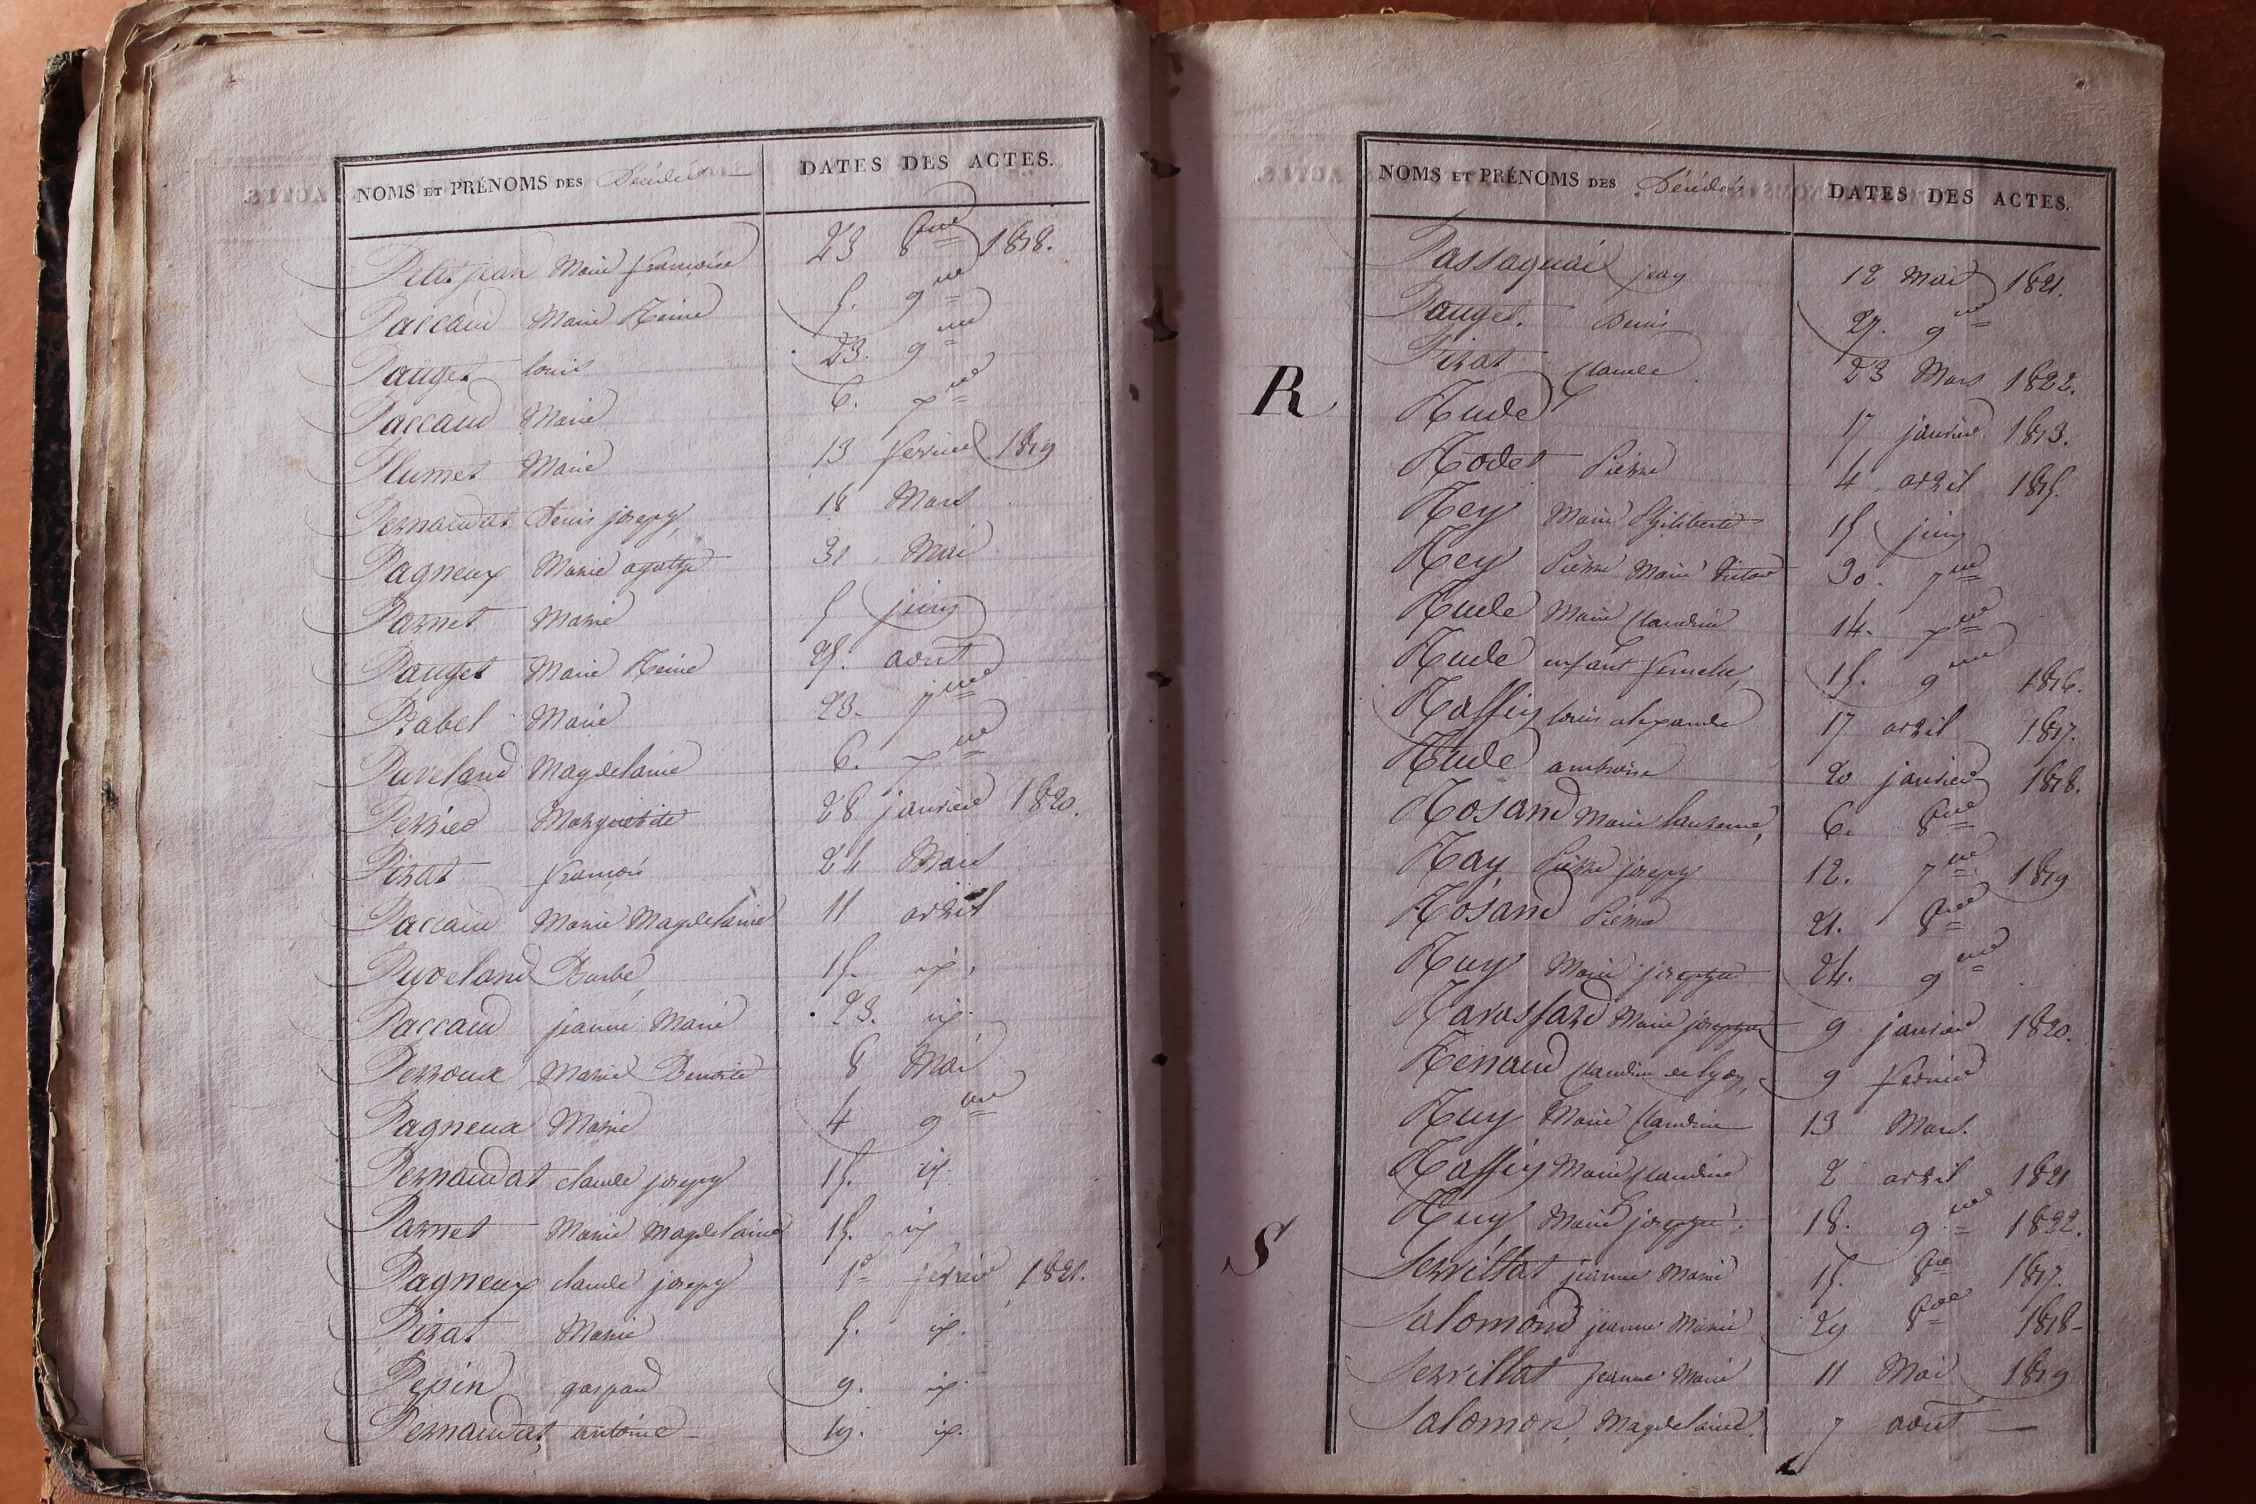 NOMS ET PRÉNOMS DES Décédés DATES DES ACTES.
Petitjean Marie françoise 23 8bre 1818.
Paccaud Marie Reine 5. 9bre
Pauget louis 23. 9bre
Paccaud Marie 6. Xbre
Plumet Marie 13 fevrier 1819
Pernaudat Denis joseph 18 Mars
Pagneux Marie agathe 31 Mai
Parnet Marie 5 juin
Pauget Marie Reine 25. aout
Prabel Marie 23. 7bre
Puveland Magdelaine 6. Xbre
Perrier Marguerite 28 janvier 1820.
Pirat françois 24 Mars
Paccaud Marie Magdelaine 11 avril
Puveland Barbe 15. id.
Paccaud jeanne Marie 23. id.
Perroux Marie Benoite 8 Mai
Pagneux Marie 4 9bre
Pernaudat claude joseph 15. id.
Parnet Marie Magdelaine 15. id.
Pagneux claude joseph 1er fevrier 1821.
Pirat Marie 5. id.
Pepin gaspard 9. id.
Pernaudat antoine 19. id.
NOMS ET PRÉNOMS DES Décédés DATES DES ACTES.
Passaquai jean 12 Mai 1821.
Pauget. Denis 27. 9bre
Pirat Claude 23 Mars 1822.
R
Rude 17 janvier 1813.
Rodet Pierre 4 avril 1815.
Rey Marie Philiberte 15 juin
Rey Pierre Marie Victor 30. 7bre
Rude Marie Claudine 14. Xbre
Rude enfant femelle 15. 9bre 1816.
Raffin louis alexandre 17 avril 1817.
Rude ambroise 20 janvier 1818.
Rosand Marie laurence 6. 8bre
Ray Pierre joseph 12. 7bre 1819
Rosand Pierre 21. 8bre
Ruy Marie josephte 24. 9bre
Ravassard Marie josephte 9 janvier 1820.
Renaud Claudine de lyon 9 fevrier
Ruy Marie Claudine 13 Mars.
Raffin Marie Claudine 2 avril 1821
Ruy Marie josephte 18. 9bre 1822.
S
Servillat jeanne Marie 15. 8bre 1817.
Salomond jeanne Marie 29 8bre 1818
Servillat jeanne Marie 11 Mai 1819
Salomon, Magdelaine. 7 aout —